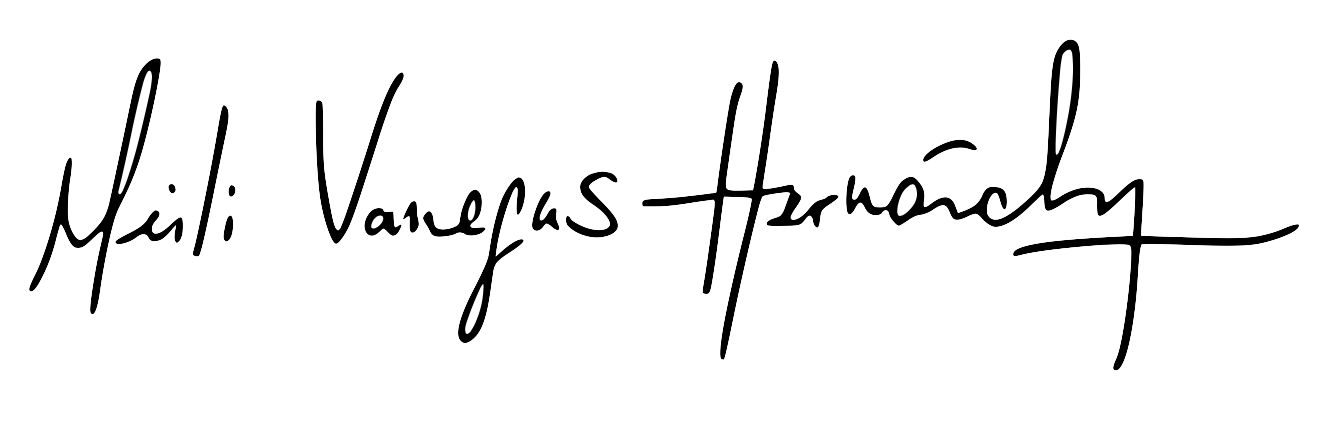 Meili Vanegas Hernández